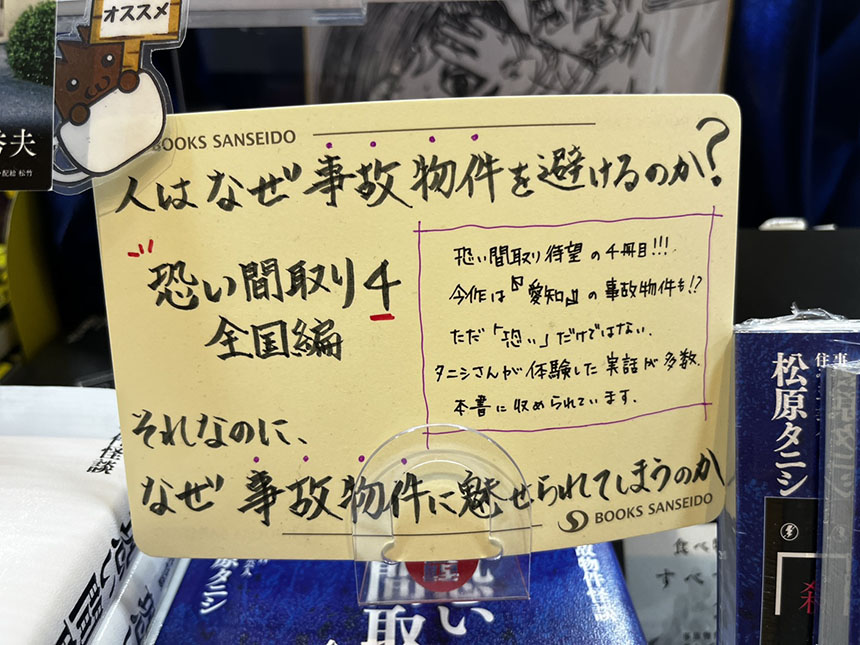 オススメ
BOOKS SANSEIDO
人はなぜ事故物件を避けるのか?
恐い間取り4
全国編
恐い間取り待望の4冊目!!!
今作は『愛知』の事故物件も!?
ただ「恐い」だけではない。
タニシさんが体験した実話が多数、
本書に収められています。
それなのに、
なぜ事故物件に魅せられてしまうのか
BOOKS SANSEIDO
松原タニシ
原タニシ
タニシ
怪談
事故物件怪談
恐い
間取
食べ
すべ
配給 松竹